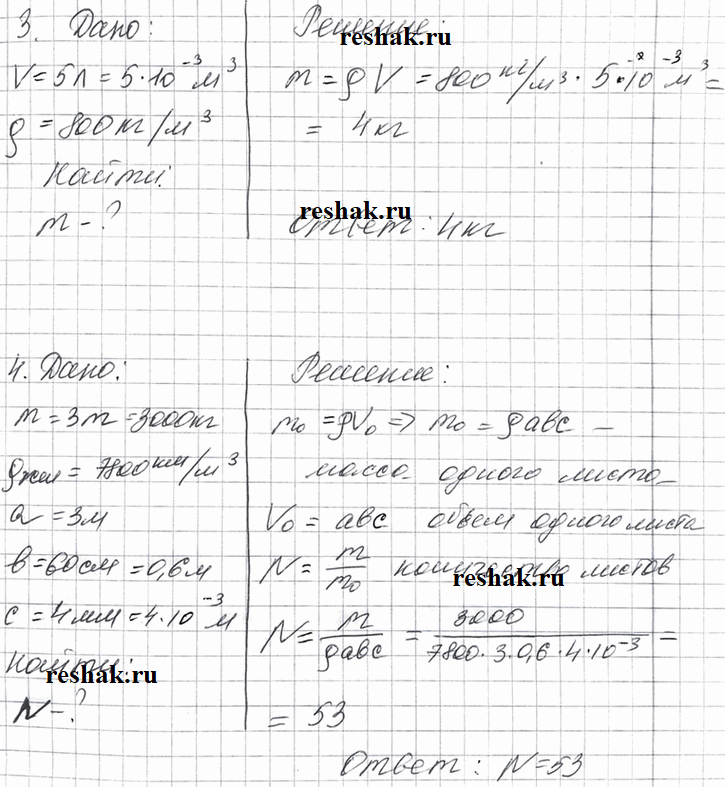 3. Дано:
V = 5л = 5·10⁻³ м³
ρ = 800 кг/м³
Найти:
m - ?
Решение:
reshak.ru
m = ρV = 800 кг/м³ · 5·10⁻³ м³ =
= 4 кг
reshak.ru
Ответ: 4 кг
4. Дано:
m = 3т = 3000кг
ρжел = 7800 км/м³
a = 3м
в = 60см = 0,6м
с = 4мм = 4·10⁻³ м
Найти:
reshak.ru
N - ?
Решение:
m₀ = ρV₀ => m₀ = ρавс –
масса одного листа
V₀ = авс объем одного листа
N = m/m₀ количество листов
reshak.ru
N = m/ρавс = 3000/7800·3·0,6·4·10⁻³ =
= 53
Ответ: N=53